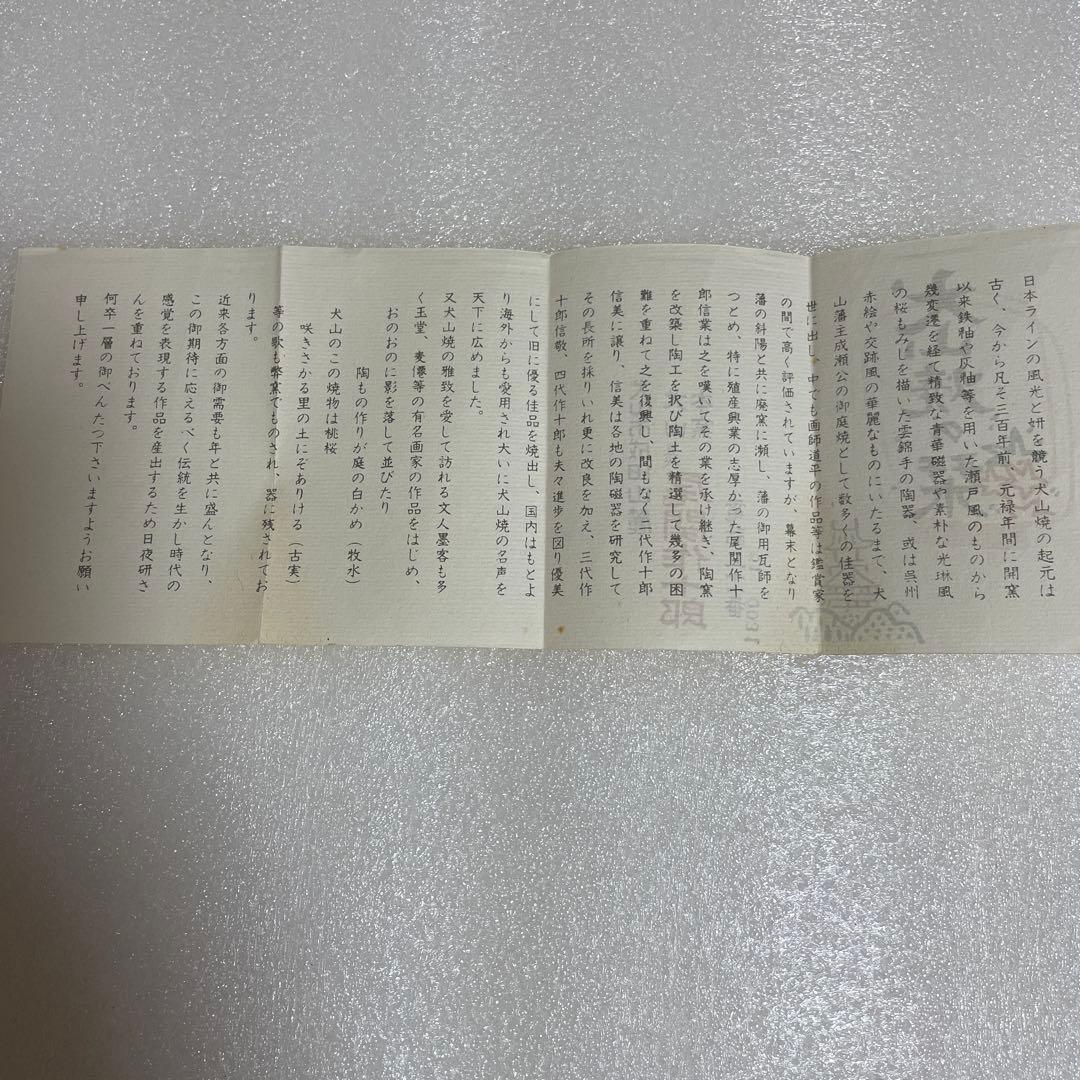 日本ラインの風光と妍を競う犬山焼の起元は
古く、今から凡そ三百年前、元禄年間に開窯
以来鉄釉や灰釉等を用いた瀬戸風のものから
幾変遷を経て精致な青華磁器や素朴な光琳風
の桜もみじを描いた雲錦手の陶器、或は呉州
赤絵や交跡風の華麗なものにいたるまで、犬
山藩主成瀬公の御庭焼として数多くの佳器を
世に出し、中でも画師道平の作品等は鑑賞家
の間で高く評価されていますが、幕末となり
藩の斜陽と共に廃窯に瀕し、藩の御用瓦師を
つとめ、特に殖産興業の志厚かった尾関作十
郎信業は之を嘆いてその業を承け継ぎ、陶窯
を改築し陶工を択び陶土を精選して幾多の困
難を重ねて之を復興し、間もなく二代作十郎
信美に譲り、信美は各地の陶磁器を研究して
その長所を採りいれ更に改良を加え、三代作
十郎信敬、四代作十郎も夫々進歩を図り優美
にして旧に優る佳品を焼出し、国内はもとよ
り海外からも愛用され大いに犬山焼の名声を
天下に広めました。
又犬山焼の雅致を愛して訪れる文人墨客も多
く玉堂、麦僊等の有名画家の作品をはじめ、
おのおのに影を落して並びたり
陶もの作りが庭の白かめ（牧水）
犬山のこの焼物は桃桜
咲きさかる里の土にぞありける（古実）
等の歌も弊窯でものされ、器に残されてお
ります。
近来各方面の御需要も年と共に盛んとなり、
この御期待に応えるべく伝統を生かし時代の
感覚を表現する作品を産出するため日夜研さ
んを重ねております。
何卒一層の御べんたつ下さいますようお願い
申し上げます。